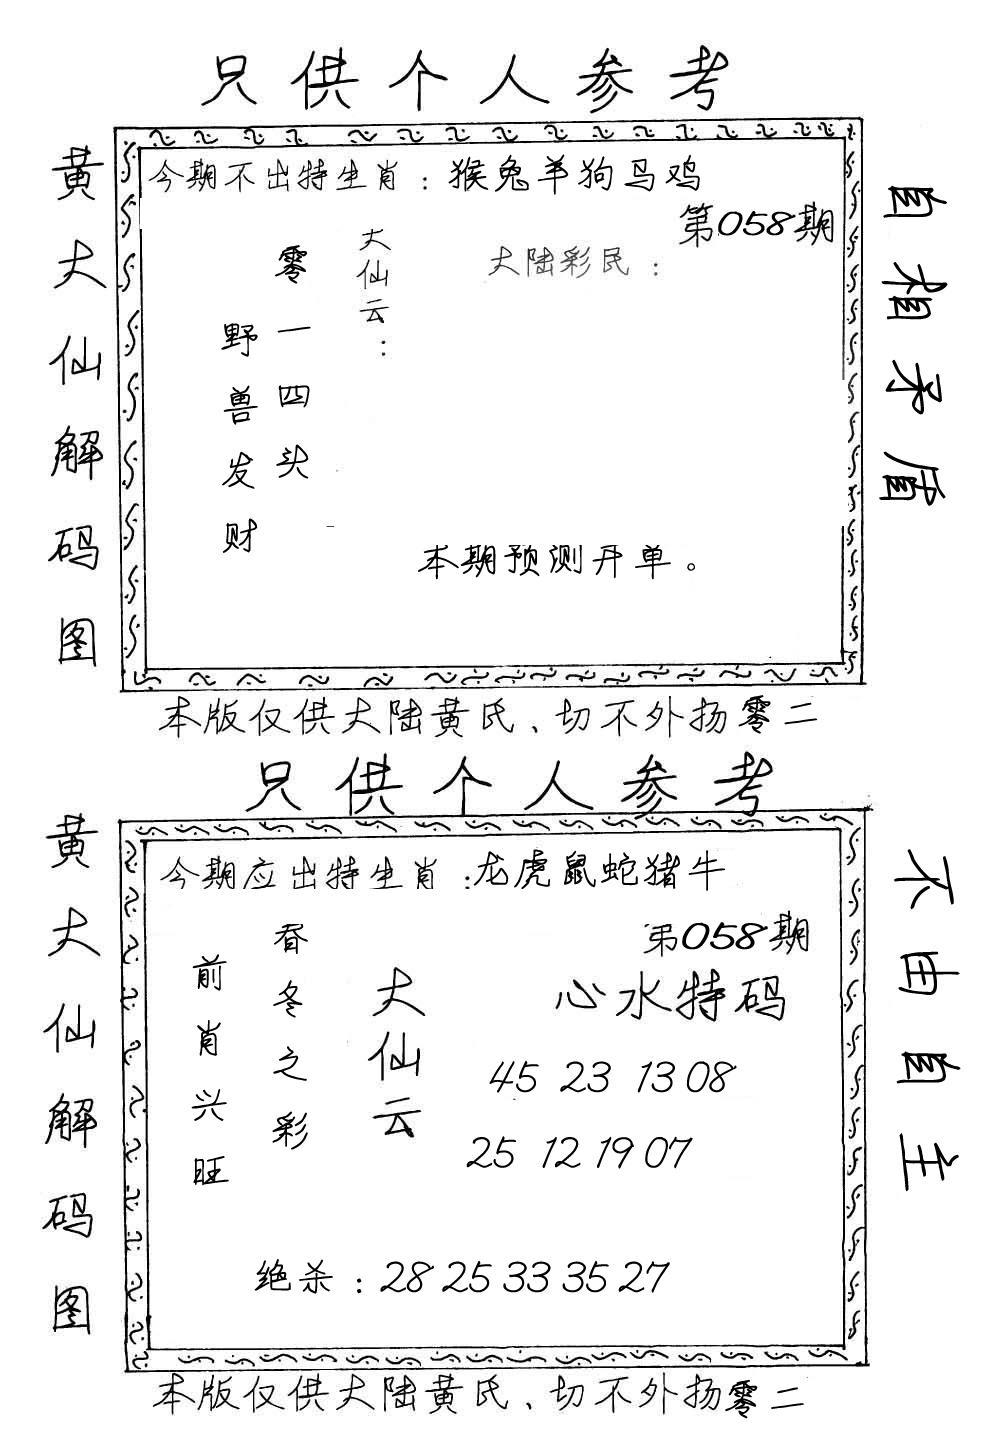 只供个人参考
黄大仙解码图
今期不出特生肖：猴兔羊狗马鸡
第058期
大陆彩民：
大仙云：
零一四头
野兽发财
本期预测开单。
自相矛盾
本版仅供大陆黄氏、切不外扬零二
只供个人参考
黄大仙解码图
今期应出特生肖：龙虎鼠蛇猪牛
第058期
心水特码
45 23 13 08
25 12 19 07
大仙云
春冬之彩
前肖兴旺
绝杀：28 25 33 35 27
不由自主
本版仅供大陆黄氏、切不外扬零二